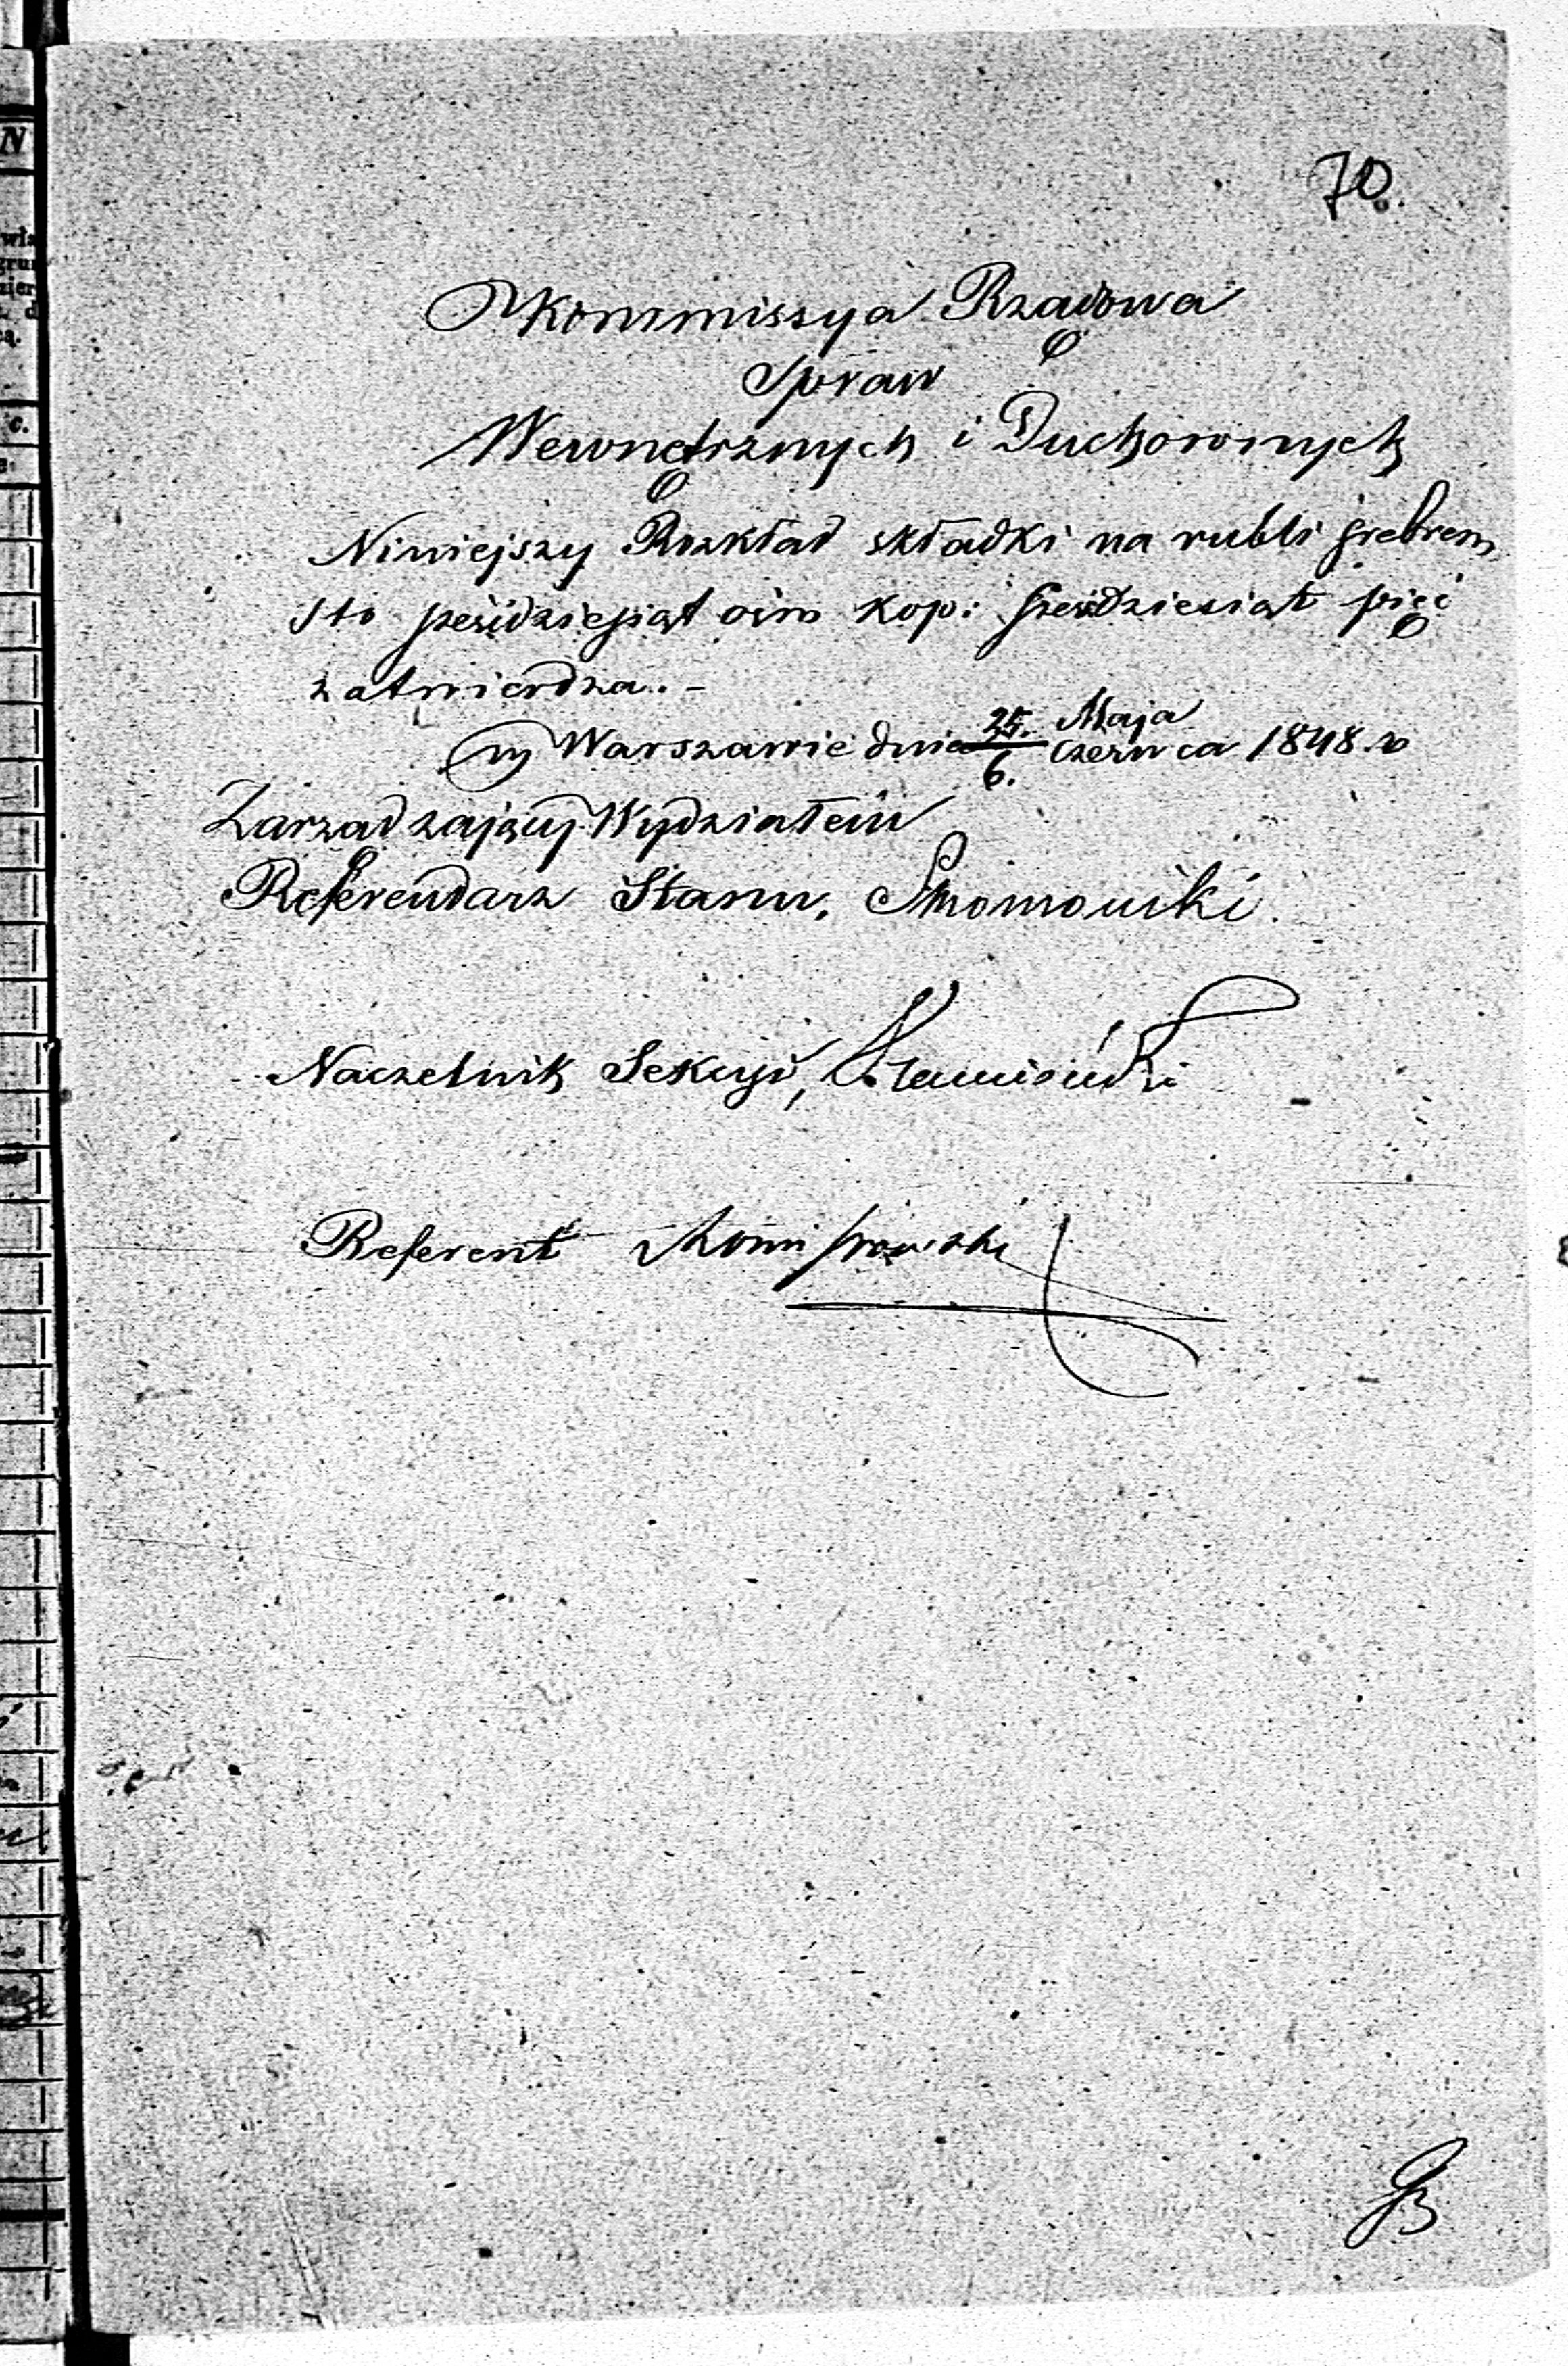 70.
Kommissya Rządowa
Spraw
Wewnętrznych i Duchownych
Niniejszy Rozkład składki na rubli srebrem
sto sześćdziesiąt ośm kop: sześćdziesiąt pięć
zatwierdza. -
w Warszawie dnia 25. Maja
6. Czerwca 1848. r
Zarządzający Wydziałem
Referendarz Stanu,
Naczelnik Sekcyi,
Referent